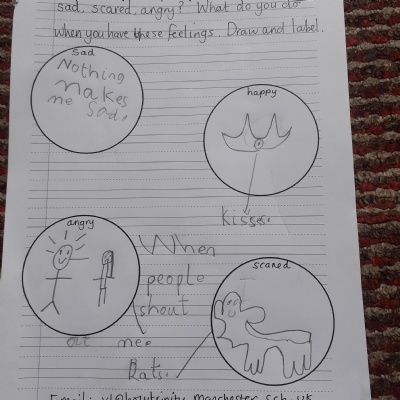 sad, scared, angry? What do you do
when you have these feelings. Draw and label.
sad
Nothing
makes
me sad.
happy
kisses.
angry
When
people
shout
at me.
scared
Rats.